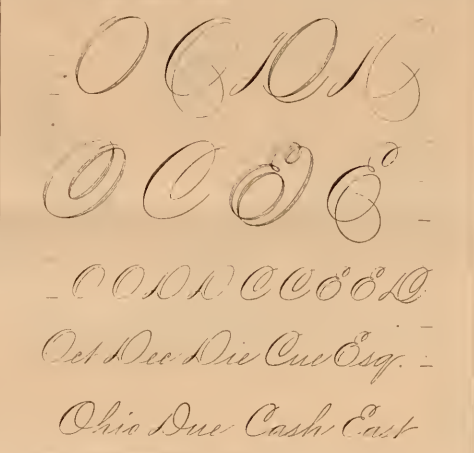 O C D
O C E E
O O D D C C E E D
Oct Dec Die Cue Esq.
Ohio Due Cash East